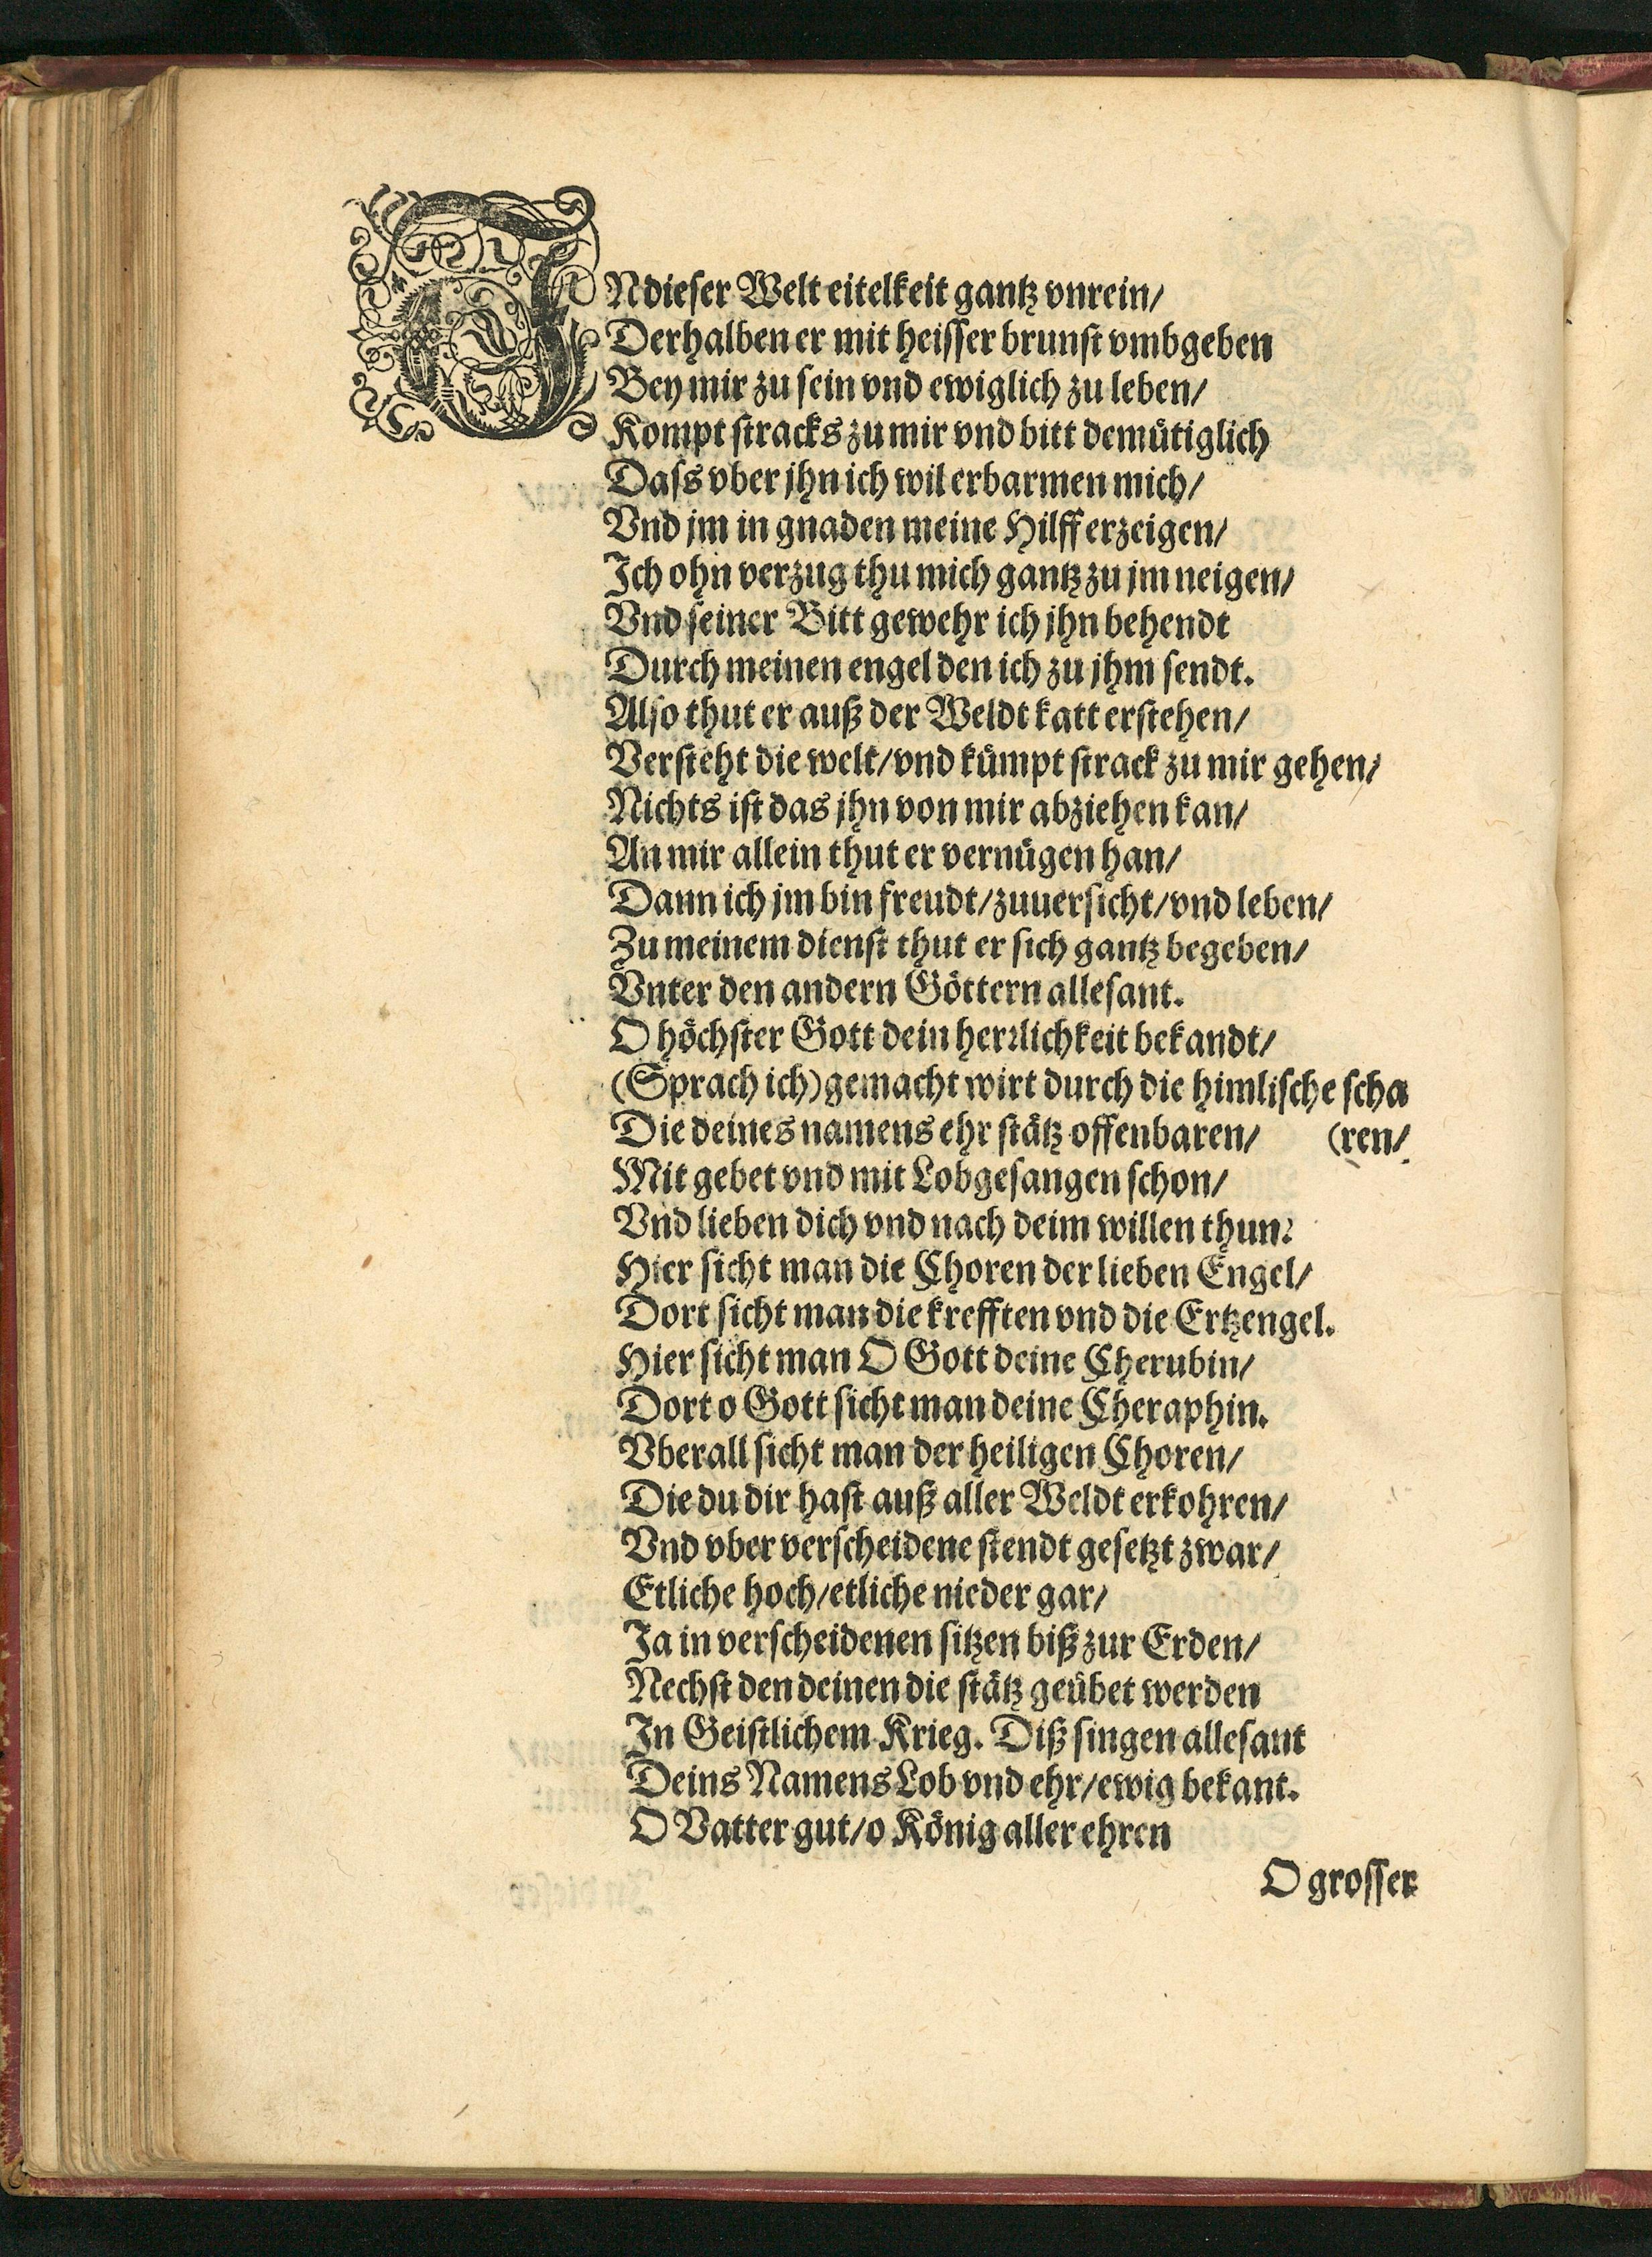 INdieser Welt eitelkeit gantz vnrein/
Derhalben er mit heisser brunst vmbgeben
Bey mir zu sein vnd ewiglich zu leben/
Kompt stracks zu mir vnd bitt demütiglich
Dass vber jhn ich wil erbarmen mich/
Vnd jm in gnaden meine Hilff erzeigen/
Ich ohn verzug thu mich gantz zu jm neigen/
Vnd seiner Bitt gewehr ich jhn behendt
Durch meinen engel den ich zu jhm sendt.
Also thut er auß der Weldt katt erstehen/
Versteht die welt/vnd kümpt strack zu mir gehen/
Nichts ist das jhn von mir abziehen kan/
An mir allein thut er vernügen han/
Dann ich jm bin freudt/zuuersicht/vnd leben/
Zu meinem dienst thut er sich gantz begeben/
Vnter den andern Göttern allesant.
O höchster Gott dein herrlichkeit bekandt/
(Sprach ich) gemacht wirt durch die himlische scha
Die deines namens ehr stätz offenbaren/ (ren/
Mit gebet vnd mit Lobgesangen schon/
Vnd lieben dich vnd nach deim willen thun:
Hier sicht man die Choren der lieben Engel/
Dort sicht man die krefften vnd die Ertzengel.
Hier sicht man O Gott deine Cherubin/
Dort o Gott sicht man deine Cheraphin.
Vberall sicht man der heiligen Choren/
Die du dir hast auß aller Weldt erkohren/
Vnd vber verscheidene stendt gesetzt zwar/
Etliche hoch/etliche nieder gar/
Ja in verscheidenen sitzen biß zur Erden/
Nechst den deinen die stätz geübet werden
In Geistlichem Krieg. Diß singen allesant
Deins Namens Lob vnd ehr/ewig bekant.
O Vatter gut/o König aller ehren
O grosser